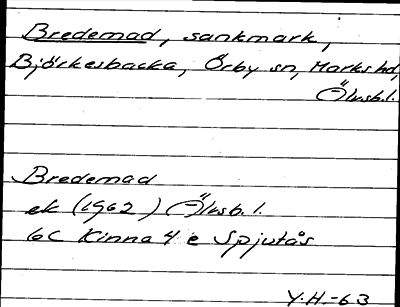 Bredemad, sankmark,
Björkesbacka, Örby sn, Marks hd,
Älvsb.l.
Bredemad
ek (1962) Älvsb.l.
6C Kinna 4 e Spjutås
Y.H.-63